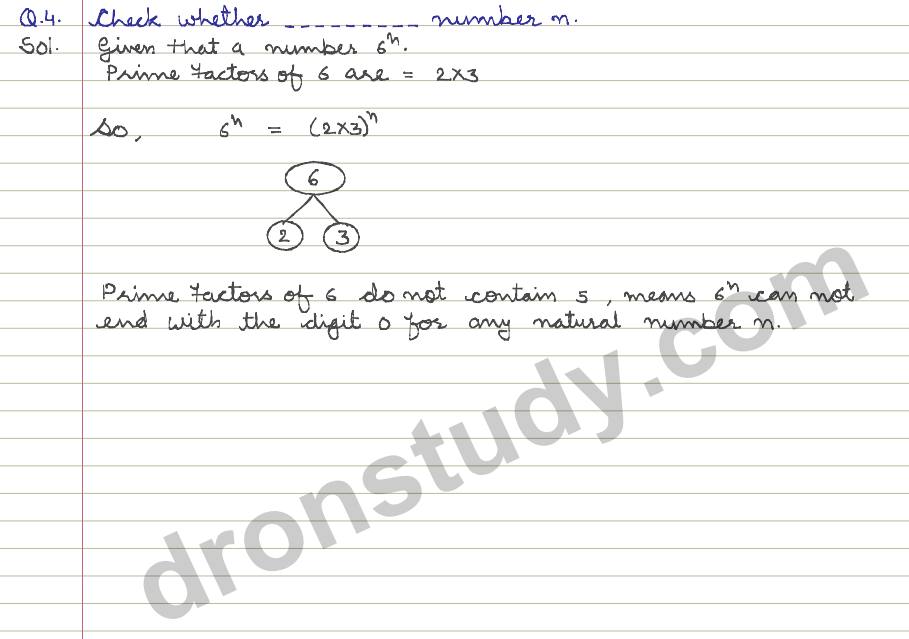 Q.4. Check whether _ _ _ _ _ _ _ _ _ number n.
Sol. Given that a number 6ⁿ.
Prime Factors of 6 are = 2×3
So, 6ⁿ = (2×3)ⁿ
6
2 3
Prime Factors of 6 do not contain 5, means 6ⁿ can not
end with the digit 0 for any natural number n.
dronstudy.com